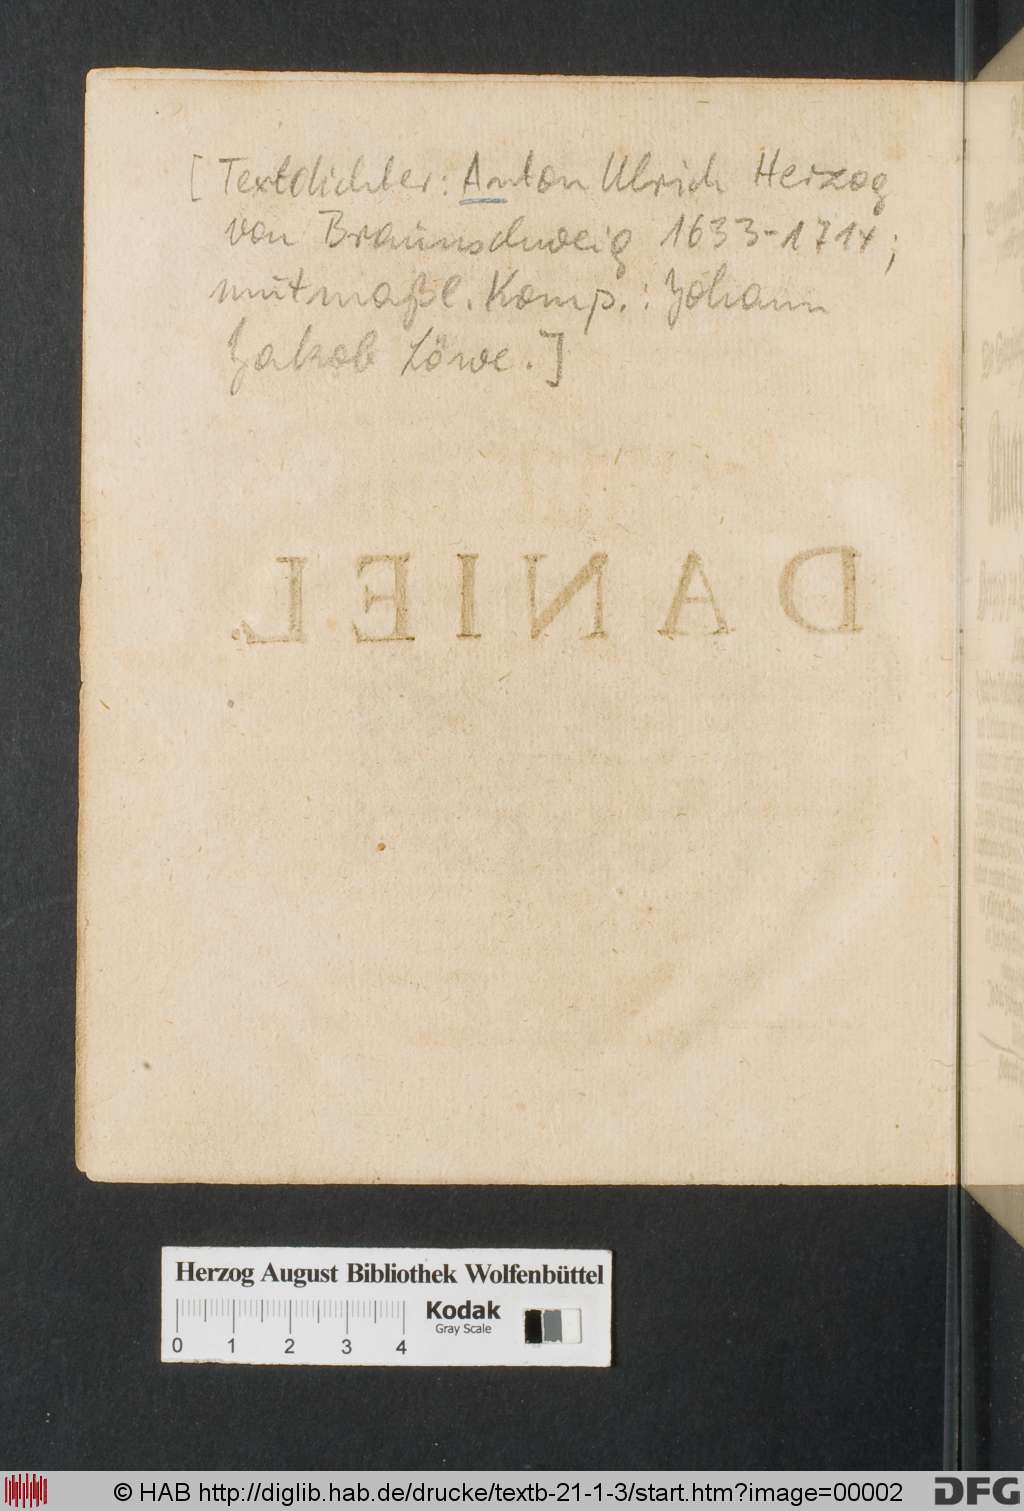 [Textdichter: Anton Ulrich Herzog
von Braunschweig 1633-1714;
mutmaßl. Komp.: Johann
Jakob Löwe.]
DANIEL.
Herzog August Bibliothek Wolfenbüttel
0 1 2 3 4
Kodak
Gray Scale
© HAB http://diglib.hab.de/drucke/textb-21-1-3/start.htm?image=00002
DFG